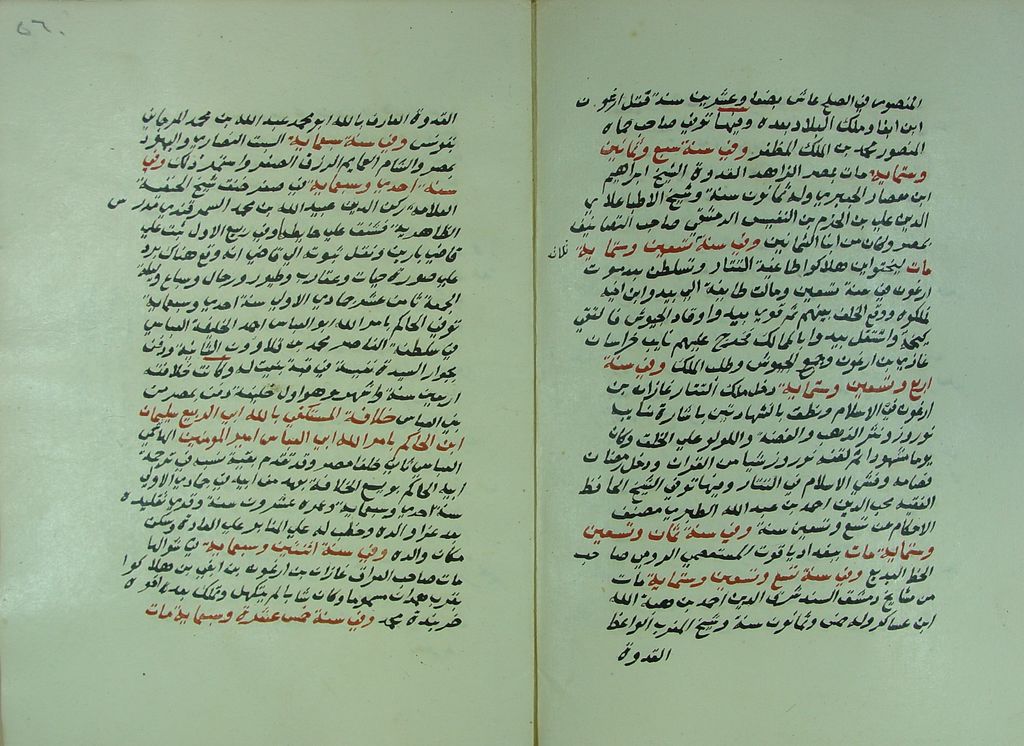 المنصوري في الصلح عاش بضعا وعشرين سنة قتل ارغون
ابن ابغا وملك البلاد بعده وفيها توفي صاحب حماه
المنصور محمد بن الملك المظفر وفي سنة سبع وثمانين
وستماية مات بمصر الزاهد القدوة الشيخ ابراهيم
ابن معضاد الجعبري وله ثمانون سنة وشيخ الاطبا علاي
الدين علي بن ابي الحزم بن النفيس الدمشقي صاحب التصانيف
بمصر وكان من ابنا الثمانين وفي سنة تسعين وستماية
مات ارغون ابن هلاكوا طاغية التتار وتسلطن بعد موت
ارغون في سنة تسعين ومالت طايفة الي بيدو ابن اخيه
فملكوه ووقع الخلف بينهم ثم قوي بيدو وقاد الجيوش فالتقي
كيختو واشتغل بيدوا بالممالك فخرج عليهم نايب خراسان
غازان بن ارغون وجمع الجيوش وطلب الملك وفي سنة
اربع وتسعين وستماية دخل ملك التتار غازان بن
ارغون في الاسلام ونطق بالشهادتين باشارة نايبه
نوروز ونثر الذهب والفضة واللولو علي الخلق وكان
يوما مشهودا ثم لقنه نوروز شيا من القران ودخل رمضان
فصامه وفشي الاسلام في التتار وفيها توفي الشيخ الحافظ
الفقيه محب الدين احمد بن عبد الله الطبري مصنف
الاحكام عن تسع وتسعين سنة وفي سنة ثمان وتسعين
وستماية مات ببغداد ياقوت المستعصمي الرومي صاحب
الخط البديع وفي سنة تسع وتسعين وستماية مات
من مشايخ دمشق المسند شرف الدين احمد بن هبة الله
ابن عساكر وله خمس وثمانون سنة وشيخ المغرب الواعظ
القدوة
القدوة العارف بالله ابو محمد عبد الله بن محمد المرجاني
بتونس وفي سنة سبعماية البست النصاري واليهود
بمصر والشام العمايم الزرق والصفر واستمر ذلك وفي
سنة احدي وسبعماية في صفر خنق شيخ الحنفية
العلامة ركن الدين عبيد الله بن محمد السمرقندي مدرس
الظاهرية فشنق علي حايطها وفي ربيع الاول ثبت علي
قاضي بارين ونقل ثبوته الي قاضي انه وقع هناك برد
علي صورة حيات وعقارب وطيور ورجال وسباع وليلة
الجمعة ثامن عشر جمادي الاولي سنة احدي وسبعماية
توفي الحاكم بامر الله ابو العباس احمد الخليفة العباسي
في سلطنة الناصر محمد بن قلاوون الثانية ودفن
بجوار السيدة نفيسة في قبة بنيت له وكانت خلافته
اربعين سنة واشهر وهو اول خليفة دفن بمصر من
بني العباس خلافة المستكفي بالله ابي الربيع سليمان
ابن الحاكم بامر الله ابي العباس امير المومنين الهاشمي
العباسي ثاني خلفا مصر وقد تقدم بقية نسبه في ترجمة
ابيه الحاكم بويع بالخلافة بعهد من ابيه في جمادي الاولي
سنة احدي وسبعماية وعمره عشرون سنة وقري تقليده
بعد عزا والده وخطب له علي المنابر علي العادة وسكن
مكان والده وفي سنة اثنتين وسبعماية في شوالها
مات صاحب العراق غازان بن ارغون بن ابغي بن هلاكوا
بقرب همدان مسموما وكان شابا لم يتكهل وملك بعده اخوه
خربندة محمد وفي سنة خمس عشرة وسبعماية مات